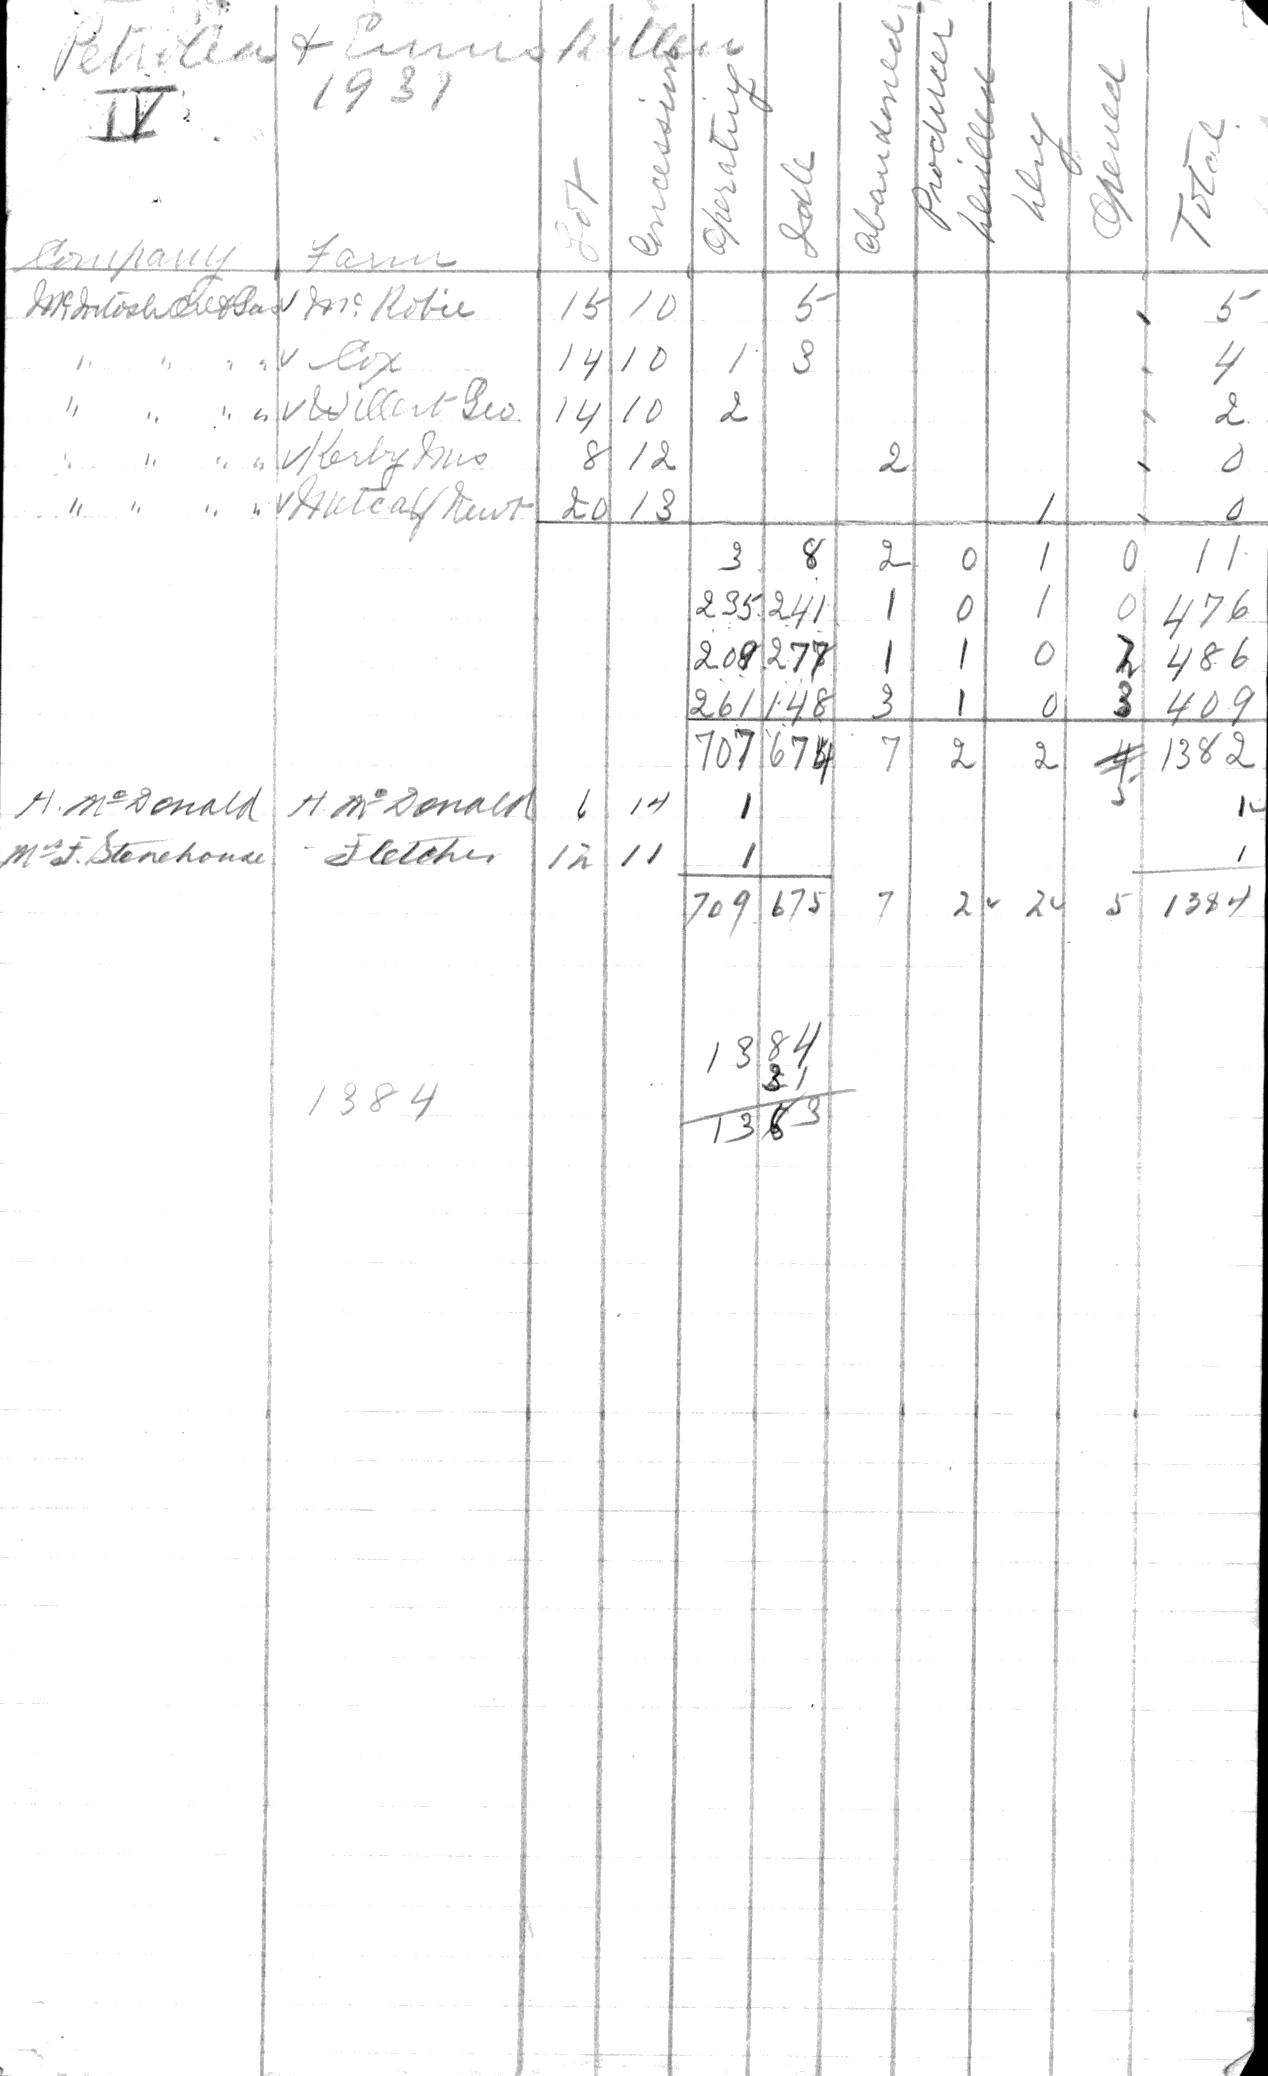 Petrolea & Enniskillen
IV 1937
Company Farm Lot Concession Operating Idle Abandoned Producer Drilled Dry Opened Total
McIntosh Oil & Gas v Mc Robie 15 10 5 5
" " " " v Cox 14 10 1 3 4
" " " " v Willert Geo. 14 10 2 2
" " " " v Kerby Mrs 8 12 2 0
" " " " v Metcalf Newt 20 13 1 0
3 8 2 0 1 0 11
235 241 1 0 1 0 476
209 277 1 1 0 2 486
261 148 3 1 0 3 409
707 674 7 2 2 4 1382
5
H. McDonald H. McDonald 6 14 1 1
Mrs F. Stonehouse Fletcher 12 11 1 1
709 675 7 2 2 5 1384
1384
31
1384
1353